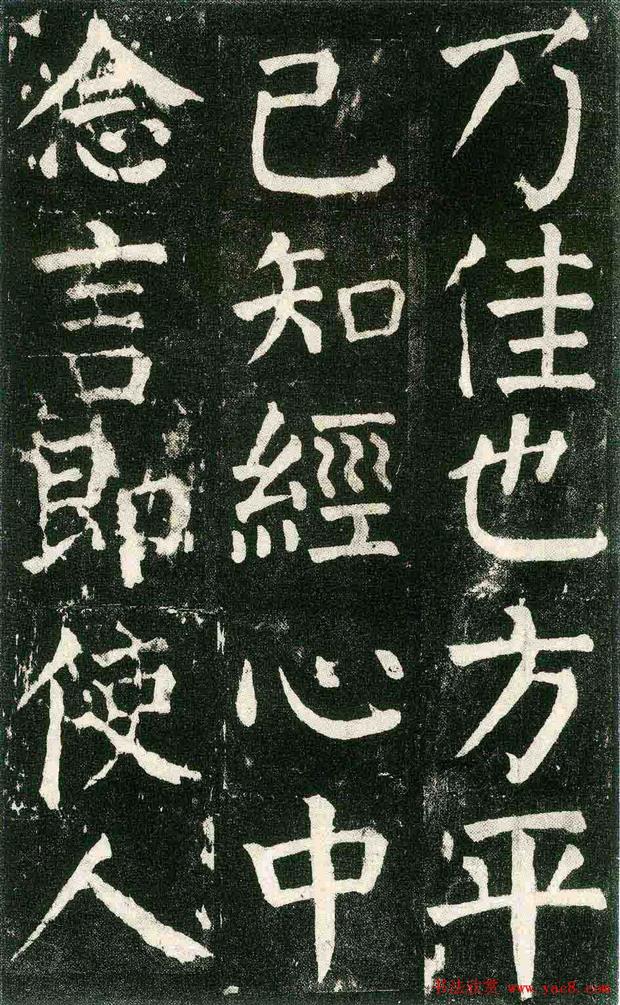 乃佳也方平
已知經心中
念言即使人
书法欣赏 www.yac8.com